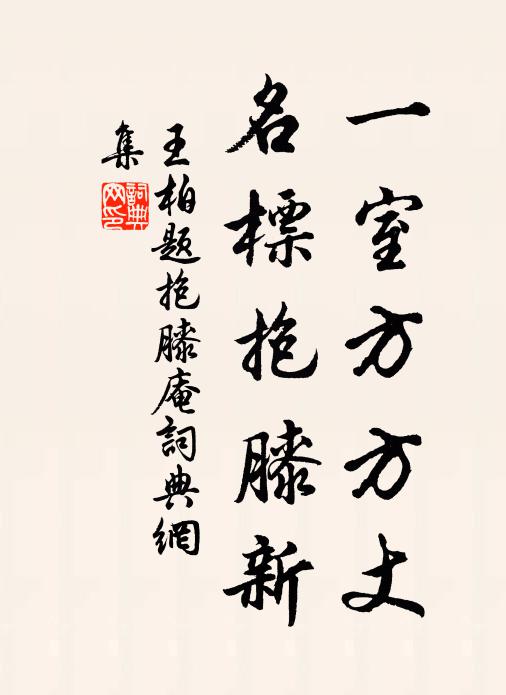 一室方方丈
名標抱膝新
王柏题抱膝庵詞典網
集
詞典網印